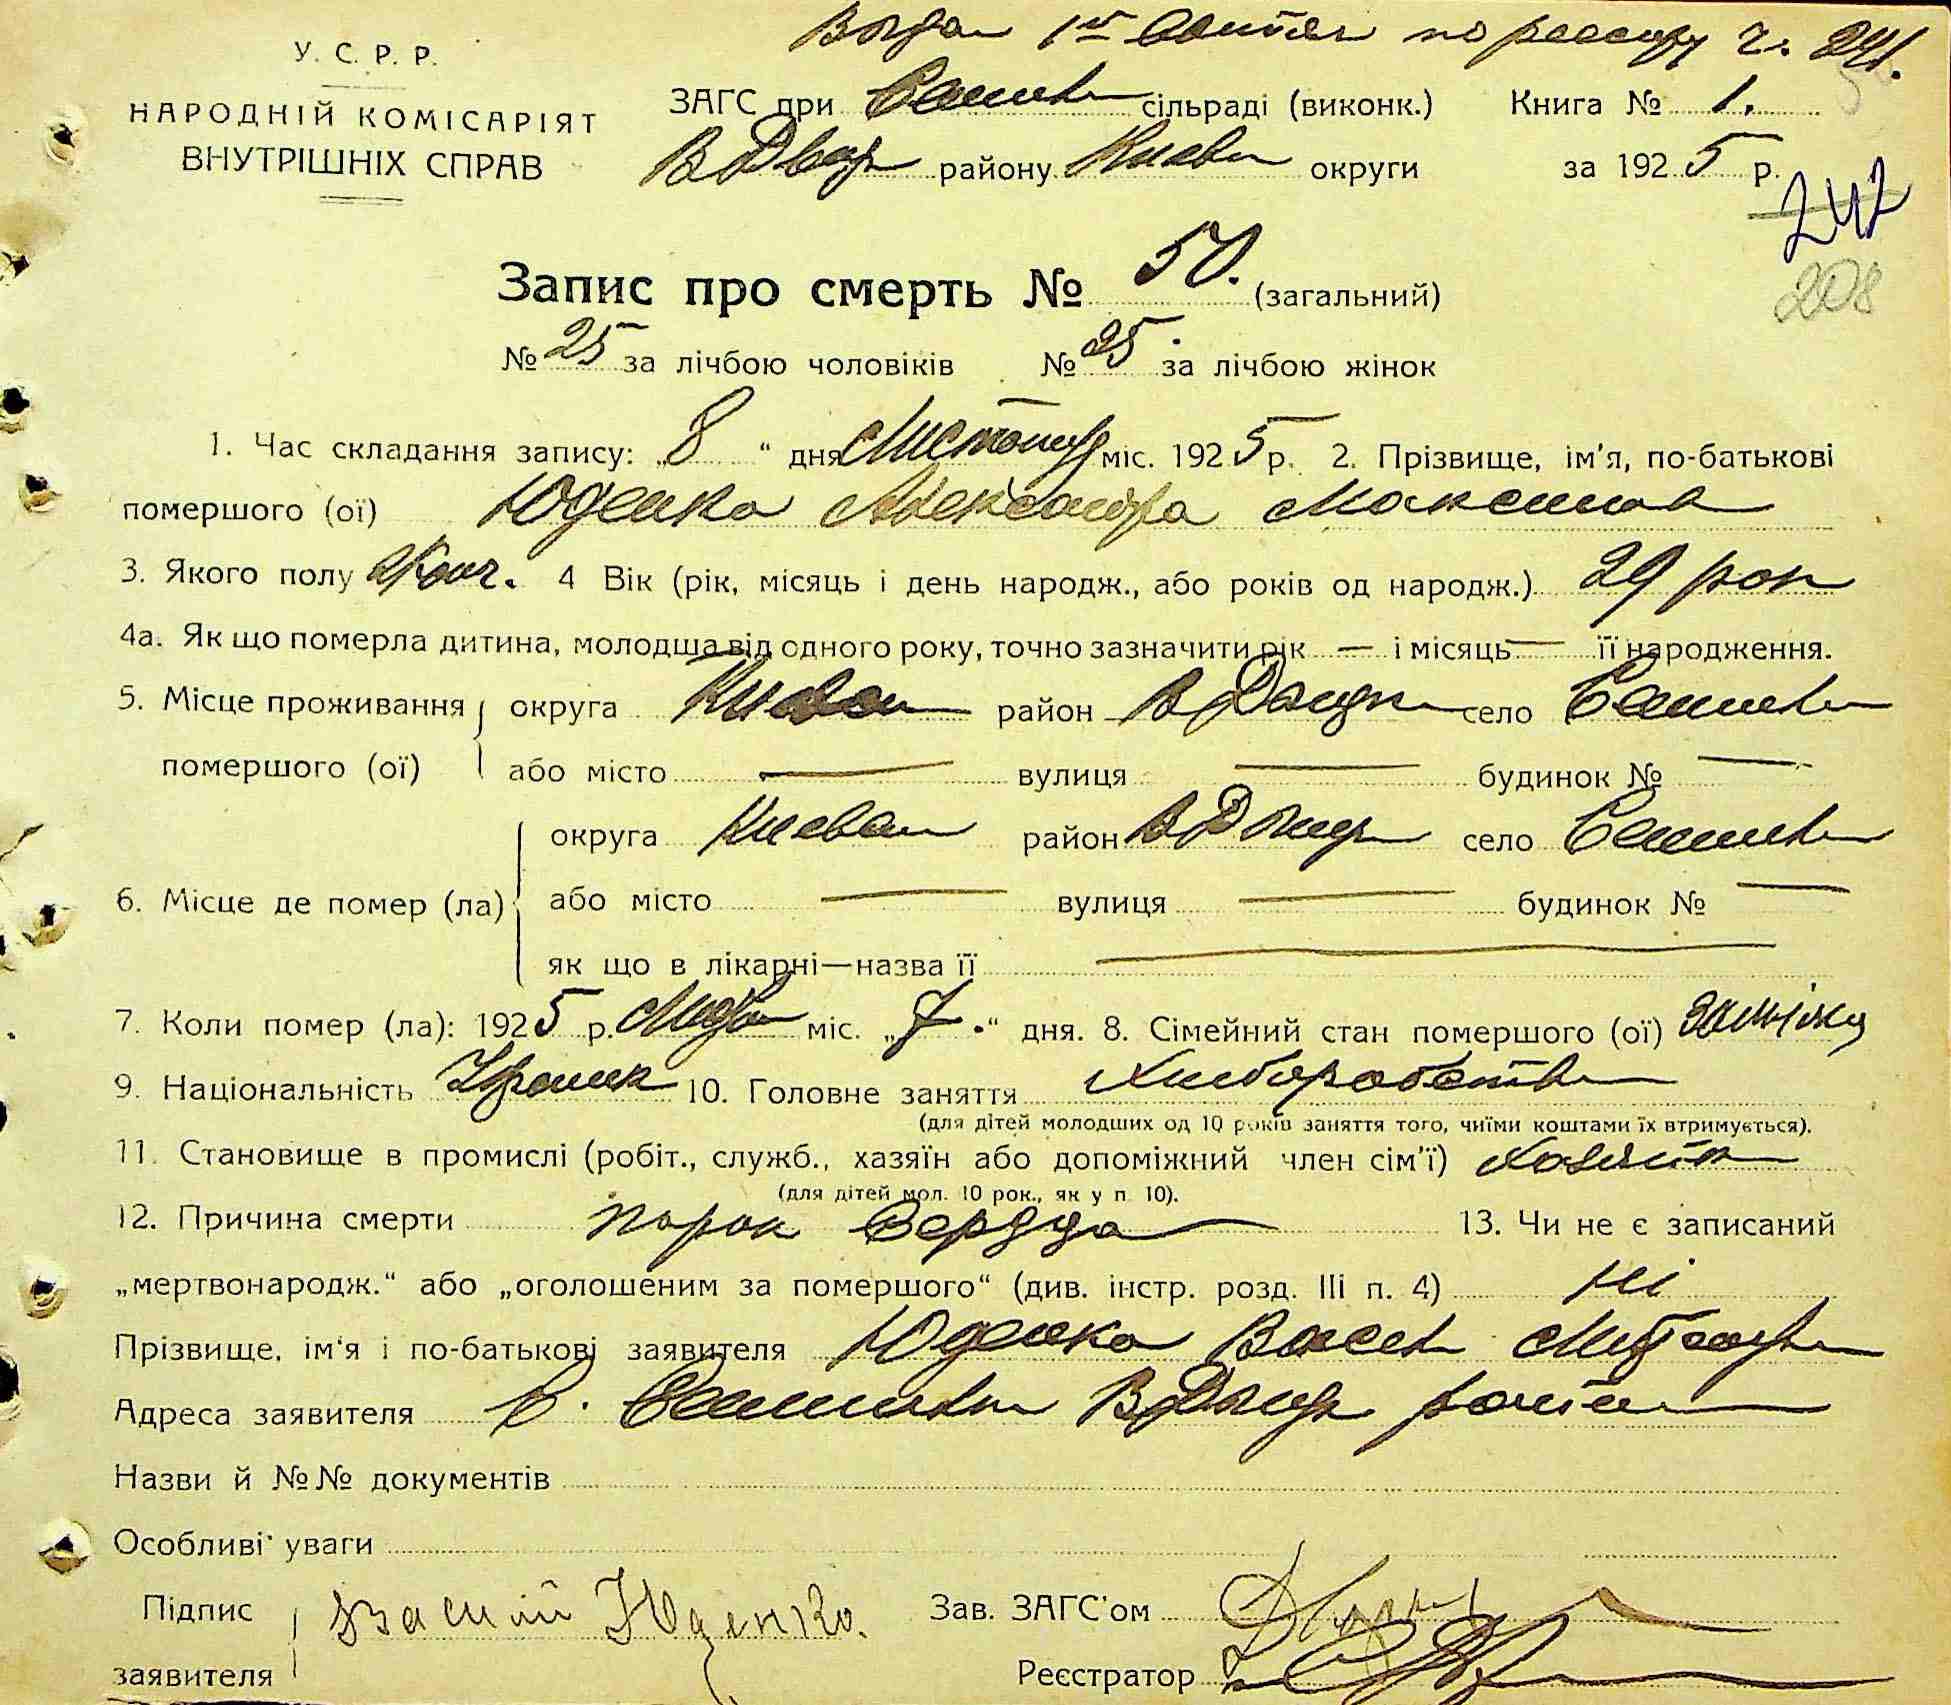 по реєстру ч. 241.
У. С. Р. Р.
НАРОДНІЙ КОМІСАРІЯТ
ВНУТРІШНІХ СПРАВ
ЗАГС при сільраді (виконк.) Книга № 1.
району Києвс округи за 1925 р.
242
208
Запис про смерть № 50. (загальний)
№ 25 за лічбою чоловіків № 25 за лічбою жінок
1. Час складання запису: „8“ дня Листопад міс. 1925 р. 2. Прізвище, ім'я, по-батькові
помершого (ої) Юденко Александра Максимов
3. Якого полу Жоноч. 4 Вік (рік, місяць і день народж., або років од народж.) 29 рок
4а. Як що померла дитина, молодша від одного року, точно зазначити рік — і місяць — її народження.
5. Місце проживання округа район село
помершого (ої) або місто — вулиця — будинок № —
округа Киевск район село
6. Місце де помер (ла) або місто — вулиця — будинок № —
як що в лікарні—назва її —
7. Коли помер (ла): 1925 р. міс. „7.“ дня. 8. Сімейний стан помершого (ої)
9. Національність 10. Головне заняття Хлиборобств
(для дітей молодших од 10 років заняття того, чиїми коштами їх втримується).
11. Становище в промислі (робіт., служб., хазяїн або допоміжний член сім'ї)
(для дітей мол. 10 рок., як у п. 10).
12. Причина смерти порок Сердца 13. Чи не є записаний
„мертвонародж.“ або „оголошеним за помершого“ (див. інстр. розд. III п. 4) ні
Прізвище, ім'я і по-батькові заявителя Юденко Васел
Адреса заявителя с.
Назви й №№ документів
Особливі уваги
Підпис Василій Юденко. Зав. ЗАГС'ом
заявителя Реєстратор